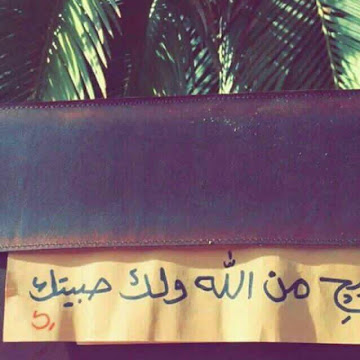 من الله ولك حبيتك